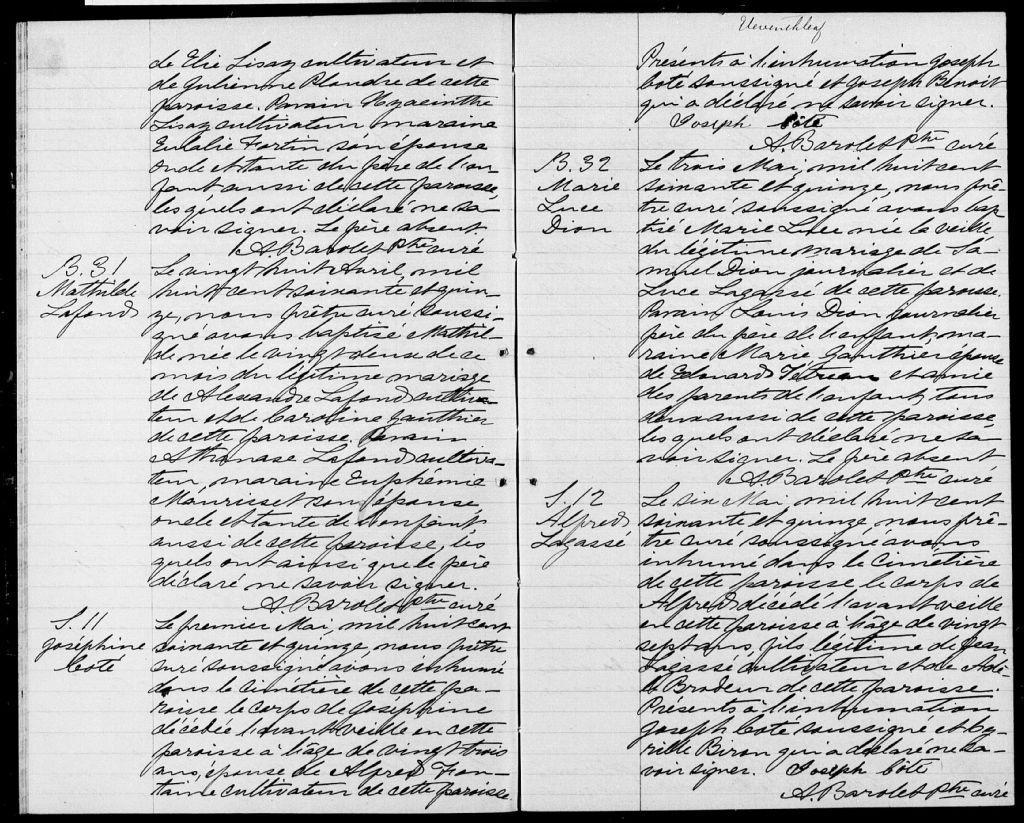 de Elie Lisay cultivateur et
de Julienne Plandre de cette
paroisse. Parain Hyacinthe
Lisay cultivateur maraine
Eulalie Fortin son épouse
oncle et tante du père de l'en-
fant aussi de cette paroisse,
les quels ont déclaré ne sa-
voir signer. Le père absent.
A. Barolet Ptre curé
B. 31
Mathilde
Lafond
Le vingt huit Avril, mil
huit cent soixante et quin-
ze, nous prêtre curé soussi-
gné avons baptisé Mathil-
de née le vingt deux de ce
mois du légitime mariage
de Alexandre Lafond cultiva-
teur et de Caroline Gauthier
de cette paroisse. Parain
Athanase Lafond cultiva-
teur, maraine Euphémie
Maurisset son épouse,
oncle et tante de l'enfant
aussi de cette paroisse, les
quels ont ainsi que le père
déclaré ne savoir signer.
A. Barolet Ptre curé
S. 11
Joséphine
Coté
Le premier Mai, mil huit cent
soixante et quinze, nous prêtre
curé soussigné avons inhumé
dans le cimetière de cette pa-
roisse le corps de Joséphine
décédée l'avant veille en cette
paroisse à l'âge de vingt trois
ans, épouse de Alfred Fon-
taine cultivateur de cette paroisse.
Présents à l'inhumation Joseph
Coté soussigné et Joseph Benoit
qui a déclaré ne savoir signer.
Joseph Côté
A. Barolet Ptre curé
B. 32
Marie
Luce
Dion
Le trois Mai, mil huit cent
soixante et quinze, nous prê-
tre curé soussigné avons bap
tisé Marie Luce née la veille
du légitime mariage de Sa-
muel Dion journalier et de
Luce Lagassé de cette paroisse.
Parain Louis Dion journalier
père du père de l'enfant, ma-
raine Marie Gauthier épouse
de Edouard et amie
des parents de l'enfant, tous
deux aussi de cette paroisse
les quels ont déclaré ne sa-
voir signer. Le père absent
A. Barolet Ptre curé
S. 12
Alfred
Lagassé
Le six Mai, mil huit cent
soixante et quinze, nous prê-
tre curé soussigné avons
inhumé dans le cimetière
de cette paroisse le corps de
Alfred décédé l'avant veille
en cette paroisse à l'âge de vingt
sept ans, fils légitime de Jean
Lagassé cultivateur et de Adè-
le Brodeur de cette paroisse.
Présents à l'inhumation
Joseph Coté soussigné et Cy-
rille Biron qui a déclaré ne sa-
voir signer. Joseph Côté
A. Barolet Ptre curé